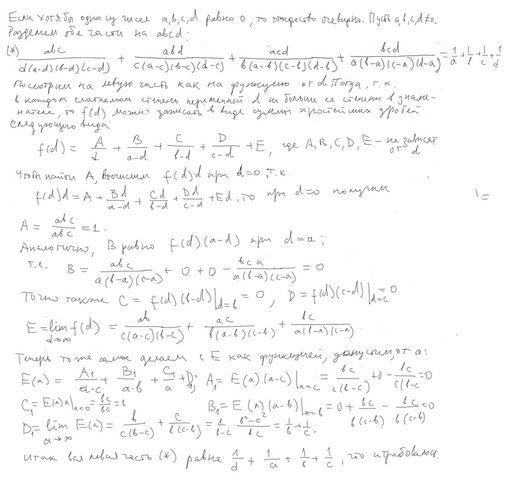 Если хотя бы одно из чисел a,b,c,d равно 0, то тождество очевидно. Пусть a,b,c,d≠0.
Разделим обе части на abcd:
(*) abc/(d(a-d)(b-d)(c-d)) + abd/(c(a-c)(b-c)(d-c)) + acd/(b(a-b)(c-b)(d-b)) + bcd/(a(b-a)(c-a)(d-a)) = 1/a + 1/b + 1/c + 1/d
Посмотрим на левую часть как на функцию от d. Тогда, т.к.
в каждом слагаемом степень переменной d не больше ее степени в знаме-
нателе, то f(d) можно записать в виде суммы простейших дробей
следующего вида
f(d) = A/d + B/(a-d) + C/(b-d) + D/(c-d) + E, где A, B, C, D, E - не зависят от d
Чтобы найти A, вычислим f(d)·d при d=0, т.к.
f(d)d = A + Bd/(a-d) + Cd/(b-d) + Dd/(c-d) + Ed, то при d=0 получим
1=
A = abc/abc = 1.
Аналогично, B равно f(d)(a-d) при d=a:
т.е. B = abc/(a(b-a)(c-a)) + 0 + 0 - bca/(a(b-a)(c-a)) = 0
Точно также C = f(d)(b-d)|d=b = 0, D = f(d)(c-d)|d=c = 0
E = lim d→∞ f(d) = ab/(c(a-c)(b-c)) + ac/(b(a-b)(c-b)) + bc/(a(b-a)(c-a))
Теперь то же самое делаем с E как функцией, допустим от a:
E(a) = A₁/(a-c) + B₁/(a-b) + C₁/a + D₁; A₁ = E(a)(a-c)|a=c = bc/(c(b-c)) + 0 - bc/(c(b-c)) = 0
C₁ = E(a)a|a=0 = bc/bc = 1 B₁ = E(a)(a-b)|a=b = 0 + bc/(b(c-b)) - bc/(b(c-b)) = 0
D₁ = lim a→∞ E(a) = b/(c(b-c)) + c/(b(c-b)) = 1/(b-c) · (b²-c²)/bc = 1/b + 1/c.
Итак вся левая часть (*) равна 1/d + 1/a + 1/b + 1/c, что и требовалось.